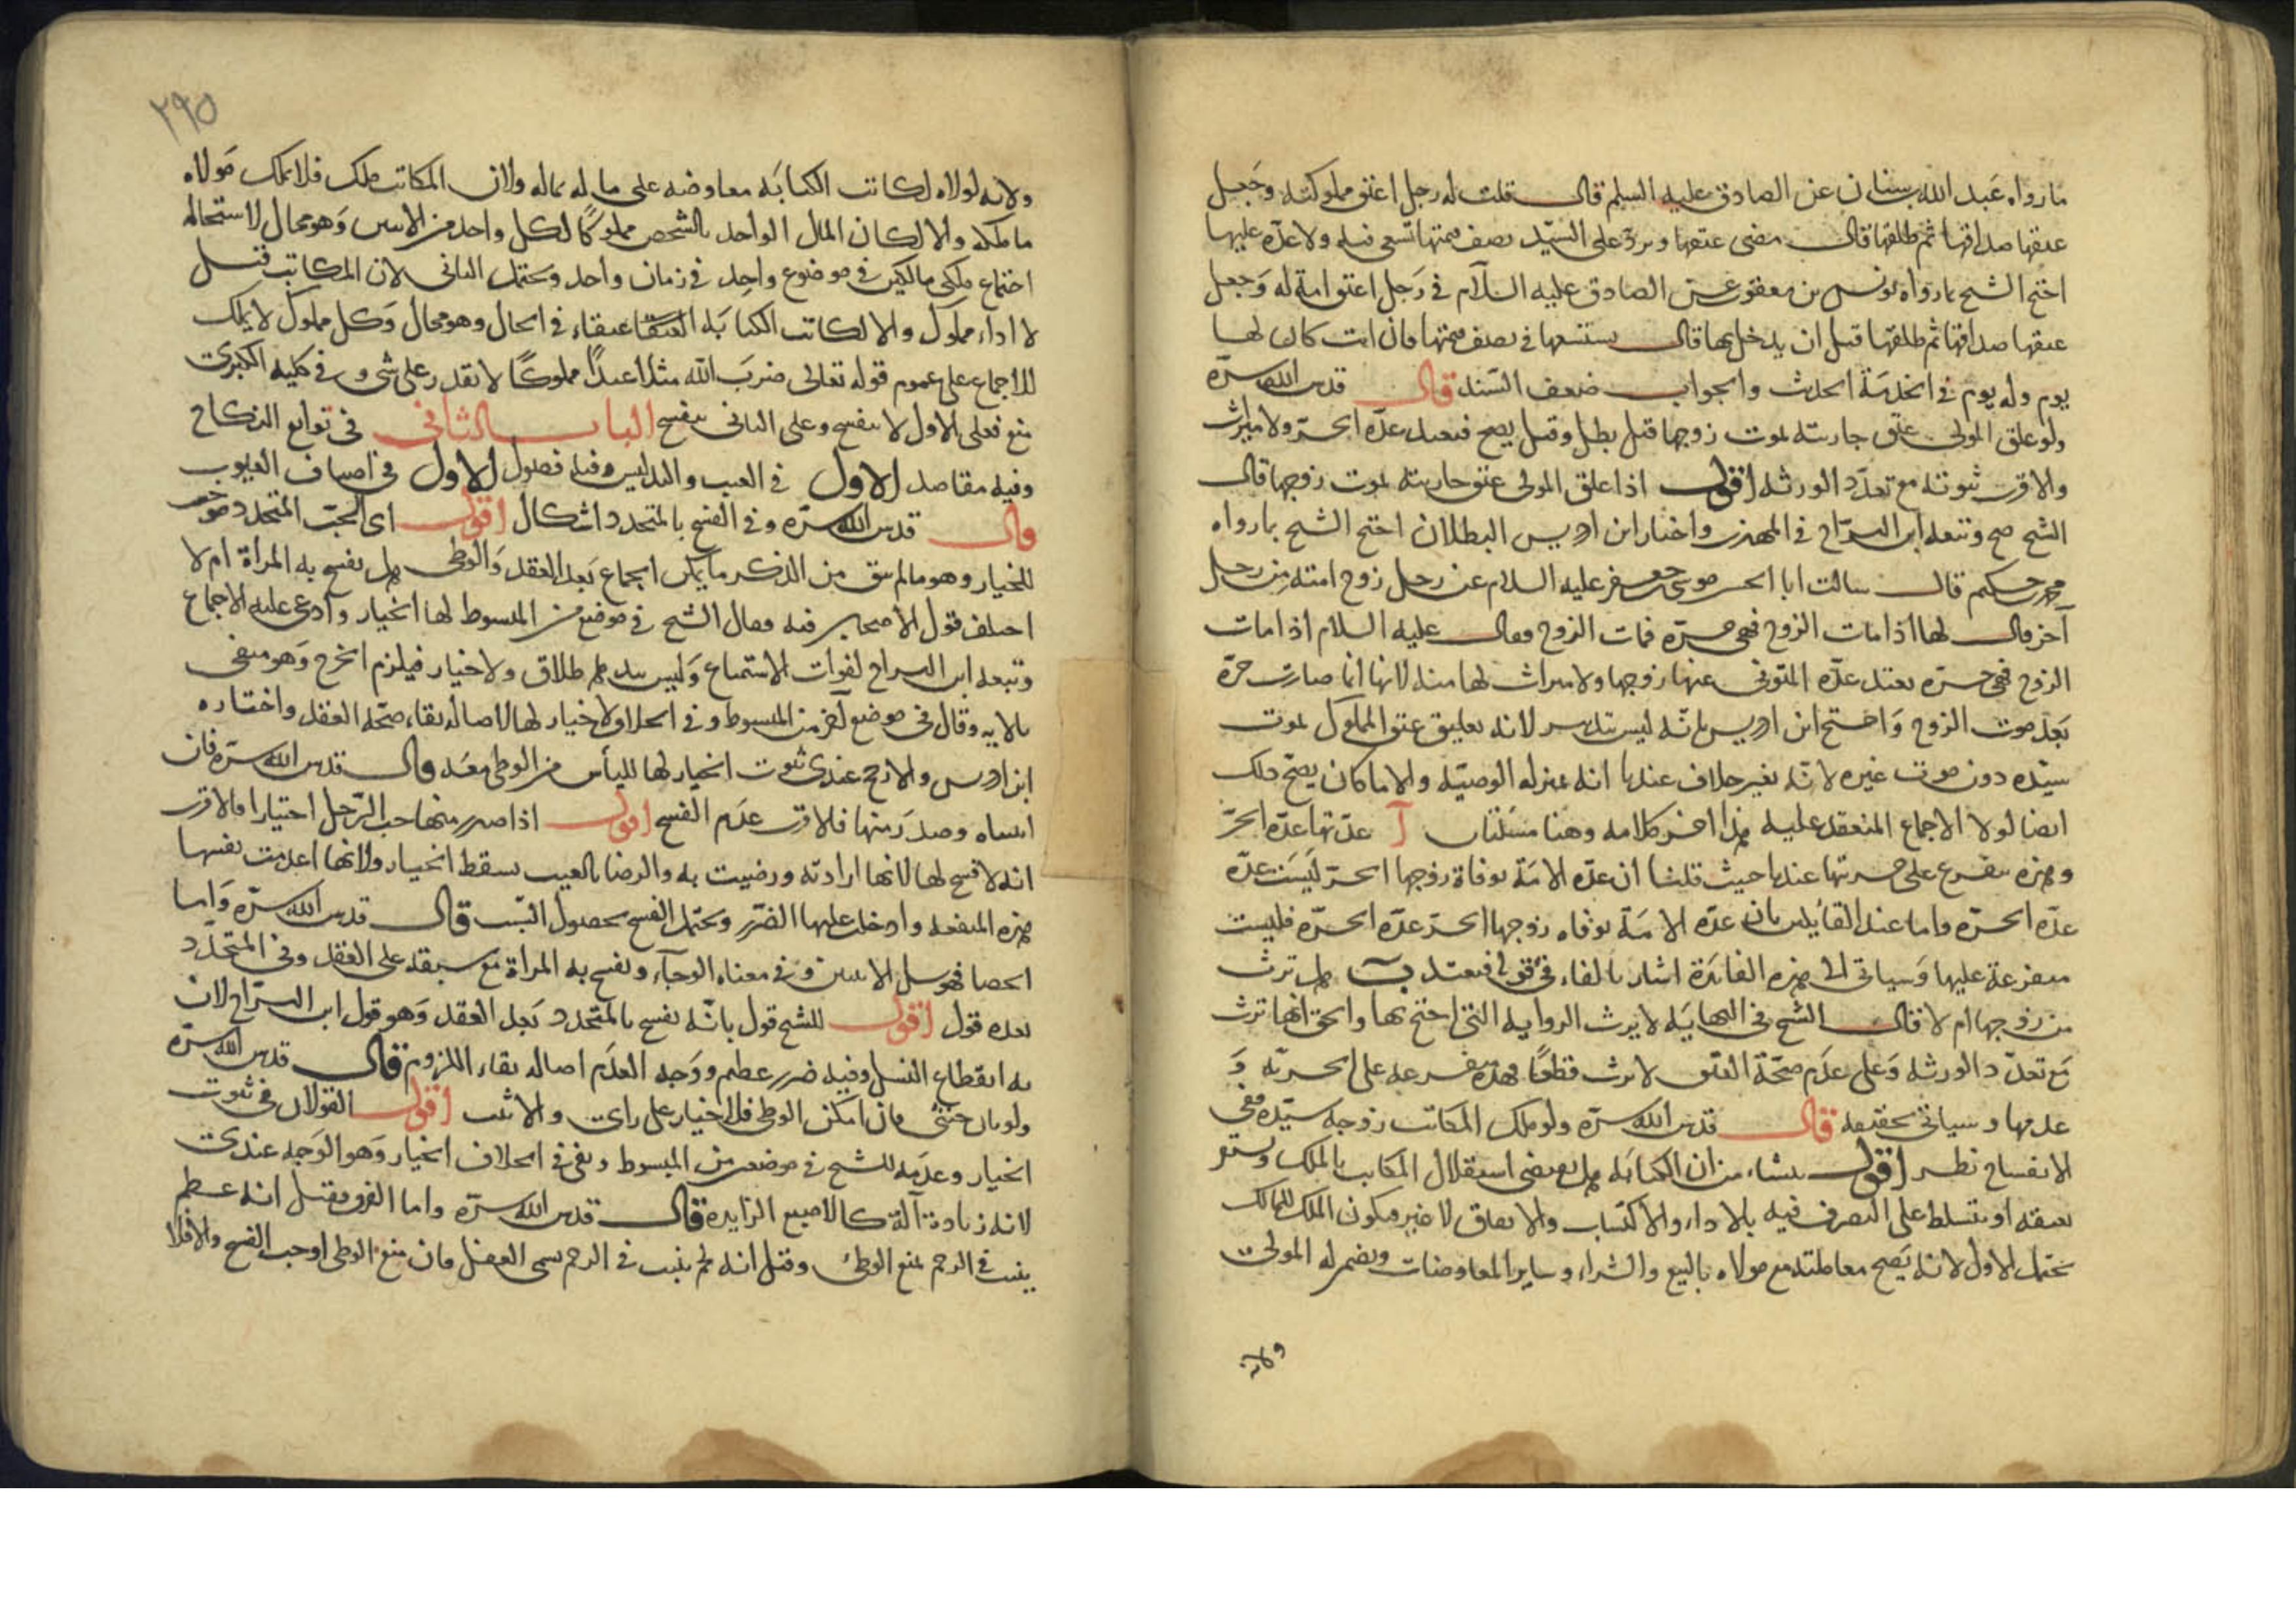 ما رواه عبد الله بن سنان عن الصادق عليه السلم قال قلت له رجل اعتق مملوكته وجعل
عتقها صداقها ثم طلقها قال مضى عتقها وبردّ على السيّد نصف قيمتها تسعى فيه ولا عدّة عليها
احتج الشيخ بما رواه يونس بن يعقوب عن الصادق عليه السلام في رجل اعتق امة له وجعل
عتقها صداقها ثم طلقها قبل ان يدخل بها قال يستسعها في نصف قيمتها فان ابت كان لها
يوم وله يوم في الخدمة الحديث والجواب ضعف السند قال قدس الله سرّه
ولو علق المولى عتق جاريته بموت زوجها قيل بطل وقيل يصح فتعتد عدّة الحرّة ولا ميراث
والاقرب ثبوته مع تعدّد الورثه اقول اذا علق المولى عتق جاريته بموت زوجها قال
الشيخ صح وتبعه ابن البرّاج في المهذب واختار ابن ادريس البطلان احتج الشيخ بما رواه
محمد بن حكيم قال سالت ابا الحسن موسى بن جعفر عليه السلام عن رجل زوج امته من رجل
آخر قال لها اذا مات الزوج فهي حرّة فمات الزوج فقال عليه السلام اذا مات
الزوج فهي حرّة تعتد عدّة المتوفى عنها زوجها ولا ميراث لها منه لانها انما صارت حرّة
بعد موت الزوج واحتج ابن ادريس بانّه ليس بتدبير لانه تعليق عتق المملوك بموت
سيّده دون موت غيره لانّه بغير خلاف عندنا انه بمنزلة الوصيّه والا ما كان يصح ذلك
ايضا لولا الاجماع المنعقد عليه هذا اخر كلامه وهنا مسئلتان آ عدتها عدّة الحرّة
وهذه متفرع على حريتها عندنا حيث قلنا ان عدّة الامة بوفاة زوجها الحرّ ليست عدّة
عدّة الحرّة واما عند القائلين بان عدّة الامة بوفاه زوجها الحرّ عدّة الحرّة فليست
متفرعة عليها وسياتي الى هذه الفايدة اشار بالفاء في قوله فتعتد بَ هل ترث
من زوجها ام لا قال الشيخ في النهايه لا يرث الروايه التي احتج بها والحق انها ترث
مع تعدّد الورثه وعلى عدم صحّة العتق لا ترث قطعًا فهذه متفرعه على الحريّه و
عدمها وسياتي تحقيقه قال قدس الله سرّه ولو ملك المكاتب زوجه سيّده ففي
الانفساخ نظر اقول ينشاء من ان الكتابه هل يقتضي استقلال المكاتب بالملك
بعتقه او تسلط على التصرف فيه بالاداء والاكتساب والانفاق لا غير ويكون الملك للمالك
يحتمل الاول لانه يصح معاملته مع مولاه بالبيع والشراء وساير المعاوضات ويضمر له المولى
ولانه
٢٩٥
ولانه لولاه لكانت الكتابه معاوضه على ماله بماله ولان المكاتب ملك فلا يملك مولاه
ما ملكه والا لكان المال الواحد بالشخص مملوكًا لكل واحد من الاثنين وهو محال لاستحاله
اجتماع ملكي مالكين في موضوع واحد في زمان واحد ويحتمل الثاني لان المكاتب قبل
الاداء مملوك والا لكانت الكتابه عتقاء في الحال وهو محال وكل مملوك لا يملك
للاجماع على عموم قوله تعالى ضرب الله مثلا عبدًا مملوكًا لا يقدر على شيء وفي كليه الكبرى
منع فعلى الاول لا ينفسخ وعلى الثاني ينفسخ الباب الثاني في توابع النكاح
وفيه مقاصد الاول في العيب والتدليس وفيه فصول الاول في اصناف العيوب
قال قدس الله سرّه وفي الفسخ بالمتجدد اشكال اقول اي الجبّ المتجدد موجب
للخيار وهو ما لم يبق من الذكر ما يمكن الجماع بعد العقد والوطى هل يفسخ به المراة ام لا
اختلف قول الاصحاب فيه فقال الشيخ في موضع من المبسوط لها الخيار وادعى عليه الاجماع
وتبعه ابن البراج لفوات الاستمتاع وليس بيدها طلاق ولا خيار فيلزم الحرج وهو منفى
بالايه وقال في موضع آخر من المبسوط وفي الخلاف لا خيار لها لاصاله بقاء صحّه العقد واختاره
ابن ادريس والارجح عندى ثبوت الخيار لها لليأس من الوطى معه قال قدس الله سرّه فان
استنداه وصدر منها فلاقرب عدم الفسخ اقول اذا صدر منها جب الرّجل اختيارا فالاقرب
انه لا فسخ لها لانها ارادته ورضيت به والرضا بالعيب يسقط الخيار ولانها اعدمت نفسها
هذه المنفعه وادخلت عليها الضّرر ويحتمل الفسخ لحصول السّبب قال قدس الله سرّه واما
الخصا فهو سل الانثيين وفي معناه الوجاء ويفسخ به المراة مع سبقه على العقد وفي المتجدّد
بعده قول اقول للشيخ قول بانّه يفسخ بالمتجدد بعد العقد وهو قول ابن البرّاج لان
به انقطاع النسل وفيه ضرر عظيم ووجه العدم اصاله بقاء اللزوم قال قدس الله سرّه
ولو بان خنثى فان امكن الوطى فلا خيار على راى والا ثبت اقول القولان في ثبوت
الخيار وعدمه للشيخ في موضعين من المبسوط ونفى في الخلاف الخيار وهو الوجه عندى
لانه زيادة آلة كالاصبع الزايدة قال قدس الله سرّه واما القرن فقيل انه عظم
ينبت في الرحم يمنع الوطى وقيل انه لحم ينبت في الرحم يسمى العفل فان منع الوطى اوجب الفسخ والا فلا